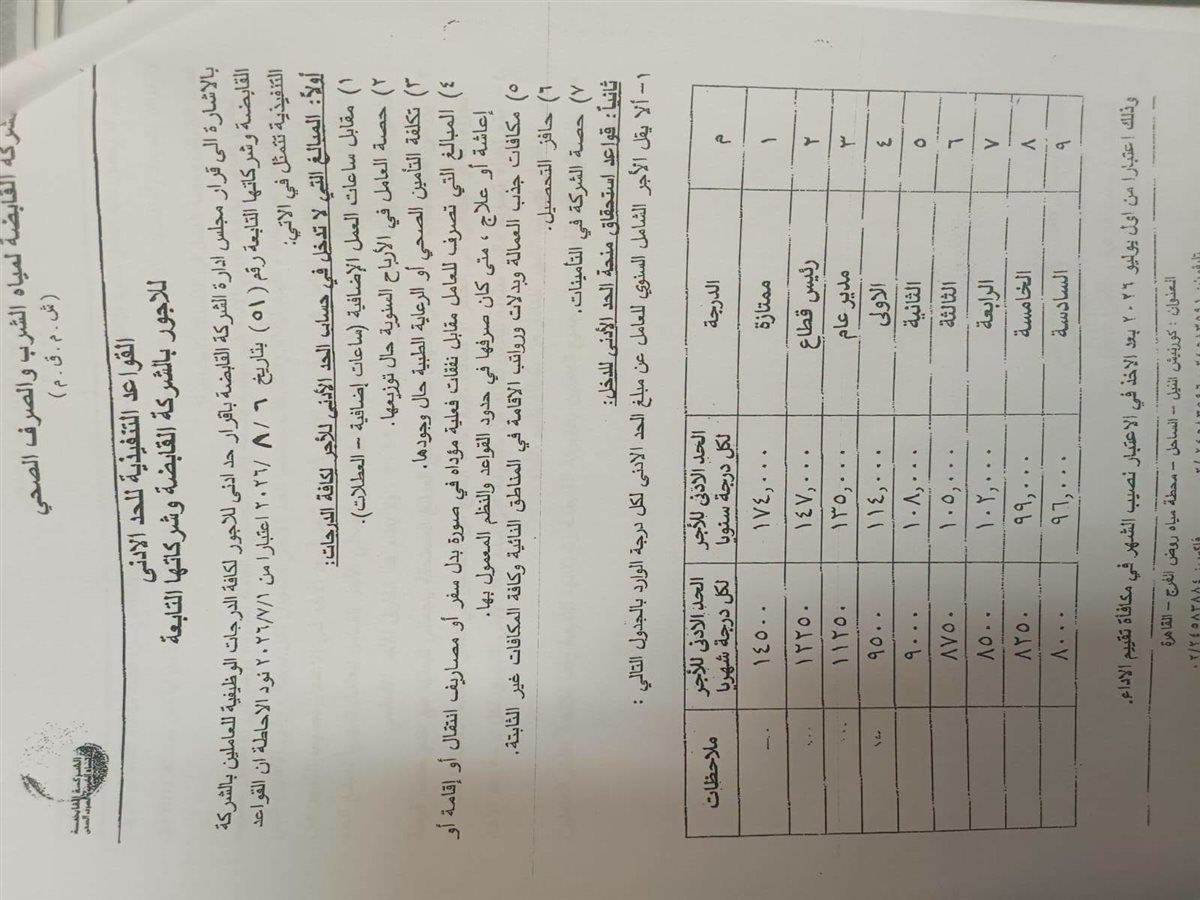 الشركة القابضة لمياه الشرب والصرف الصحي
(ش . م . ق . م)
القواعد التنفيذية للحد الادنى
للاجور بالشركة القابضة وشركاتها التابعة
بالاشارة الى قرار مجلس ادارة الشركة القابضة باقرار حد ادنى للاجور لكافة الدرجات الوظيفية للعاملين بالشركة
القابضة وشركاتها التابعة رقم (٥١) بتاريخ ٨/٦/٢٠٢٦ اعتبارا من ٢٠٢٦/٧/١ نود الاحاطة ان القواعد
التنفيذية تتمثل في الاتي:
أولاً: المبالغ التي لا تدخل في حساب الحد الأدنى للأجر لكافة الدرجات:
١) مقابل ساعات العمل الإضافية (ساعات إضافية – العطلات).
٢) حصة العامل في الأرباح السنوية حال توزيعها.
٣) تكلفة التأمين الصحي أو الرعاية الطبية حال وجودها.
٤) المبالغ التي تصرف للعامل مقابل نفقات فعلية مؤداه في صورة بدل سفر أو مصاريف انتقال أو إقامة أو
إعاشة أو علاج ، متى كان صرفها في حدود القواعد والنظم المعمول بها.
٥) مكافات جذب العمالة وبدلات ورواتب الاقامة في المناطق النائية وكافة المكافات غير الثابتة.
٦) حافز التحصيل.
٧) حصة الشركة في التأمينات.
ثانياً: قواعد استحقاق منحة الحد الأدنى للدخل:
١- ألا يقل الأجر الشامل السنوي للعامل عن مبلغ الحد الادنى لكل درجة الوارد بالجدول التالي :
م الدرجة الحد الادنى للأجر لكل درجة سنويا الحد الادنى للأجر لكل درجة شهريا ملاحظات
١ ممتازة ١٧٤,٠٠٠ ١٤٥٠٠
٢ رئيس قطاع ١٤٧,٠٠٠ ١٢٢٥٠
٣ مدير عام ١٣٥,٠٠٠ ١١٢٥٠
٤ الاولى ١١٤,٠٠٠ ٩٥٠٠
٥ الثانية ١٠٨,٠٠٠ ٩٠٠٠
٦ الثالثة ١٠٥,٠٠٠ ٨٧٥٠
٧ الرابعة ١٠٢,٠٠٠ ٨٥٠٠
٨ الخامسة ٩٩,٠٠٠ ٨٢٥٠
٩ السادسة ٩٦,٠٠٠ ٨٠٠٠
وذلك اعتبارا من اول يوليو ٢٠٢٦ بعد الاخذ في الاعتبار نصيب الشهر في مكافأة تقييم الاداء.
العنوان : كورنيش النيل – الساحل – محطة مياه روض الفرج – القاهرة